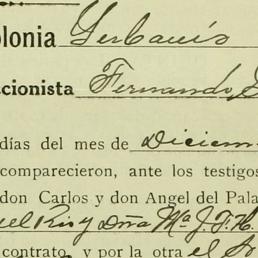 olonia Gerbaris
accionista Fernando
días del mes de Diciem
comparecieron, ante los testigos
don Carlos y don Angel del Pala
y Dña Mª J. F. H.
contrato, y por la otra el